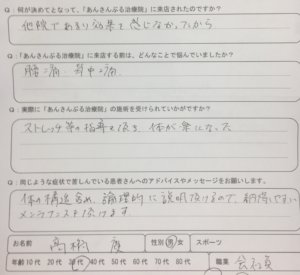 Q：何が決めてとなって、「あんさんぶる治療院」に来店されたのですか？
他院であまり効果を感じなかったから
Q：「あんさんぶる治療院」に来店する前は、どんなことで悩んでいましたか？
腰痛・背中痛
Q：実際に「あんさんぶる治療院」の施術を受けられていかがですか？
ストレッチ等の指導も頂き 体が楽になった
Q：同じような症状で苦しんでいる患者さんへのアドバイスやメッセージをお願いします。
体の構造含め、論理的に説明頂けるので、納得しやすい
メンテナンスを頂けます
お名前 高 性別 男 女 スポーツ
年齢 10代 20代 30代 40代 50代 60代 70代 80代 職業 会社員